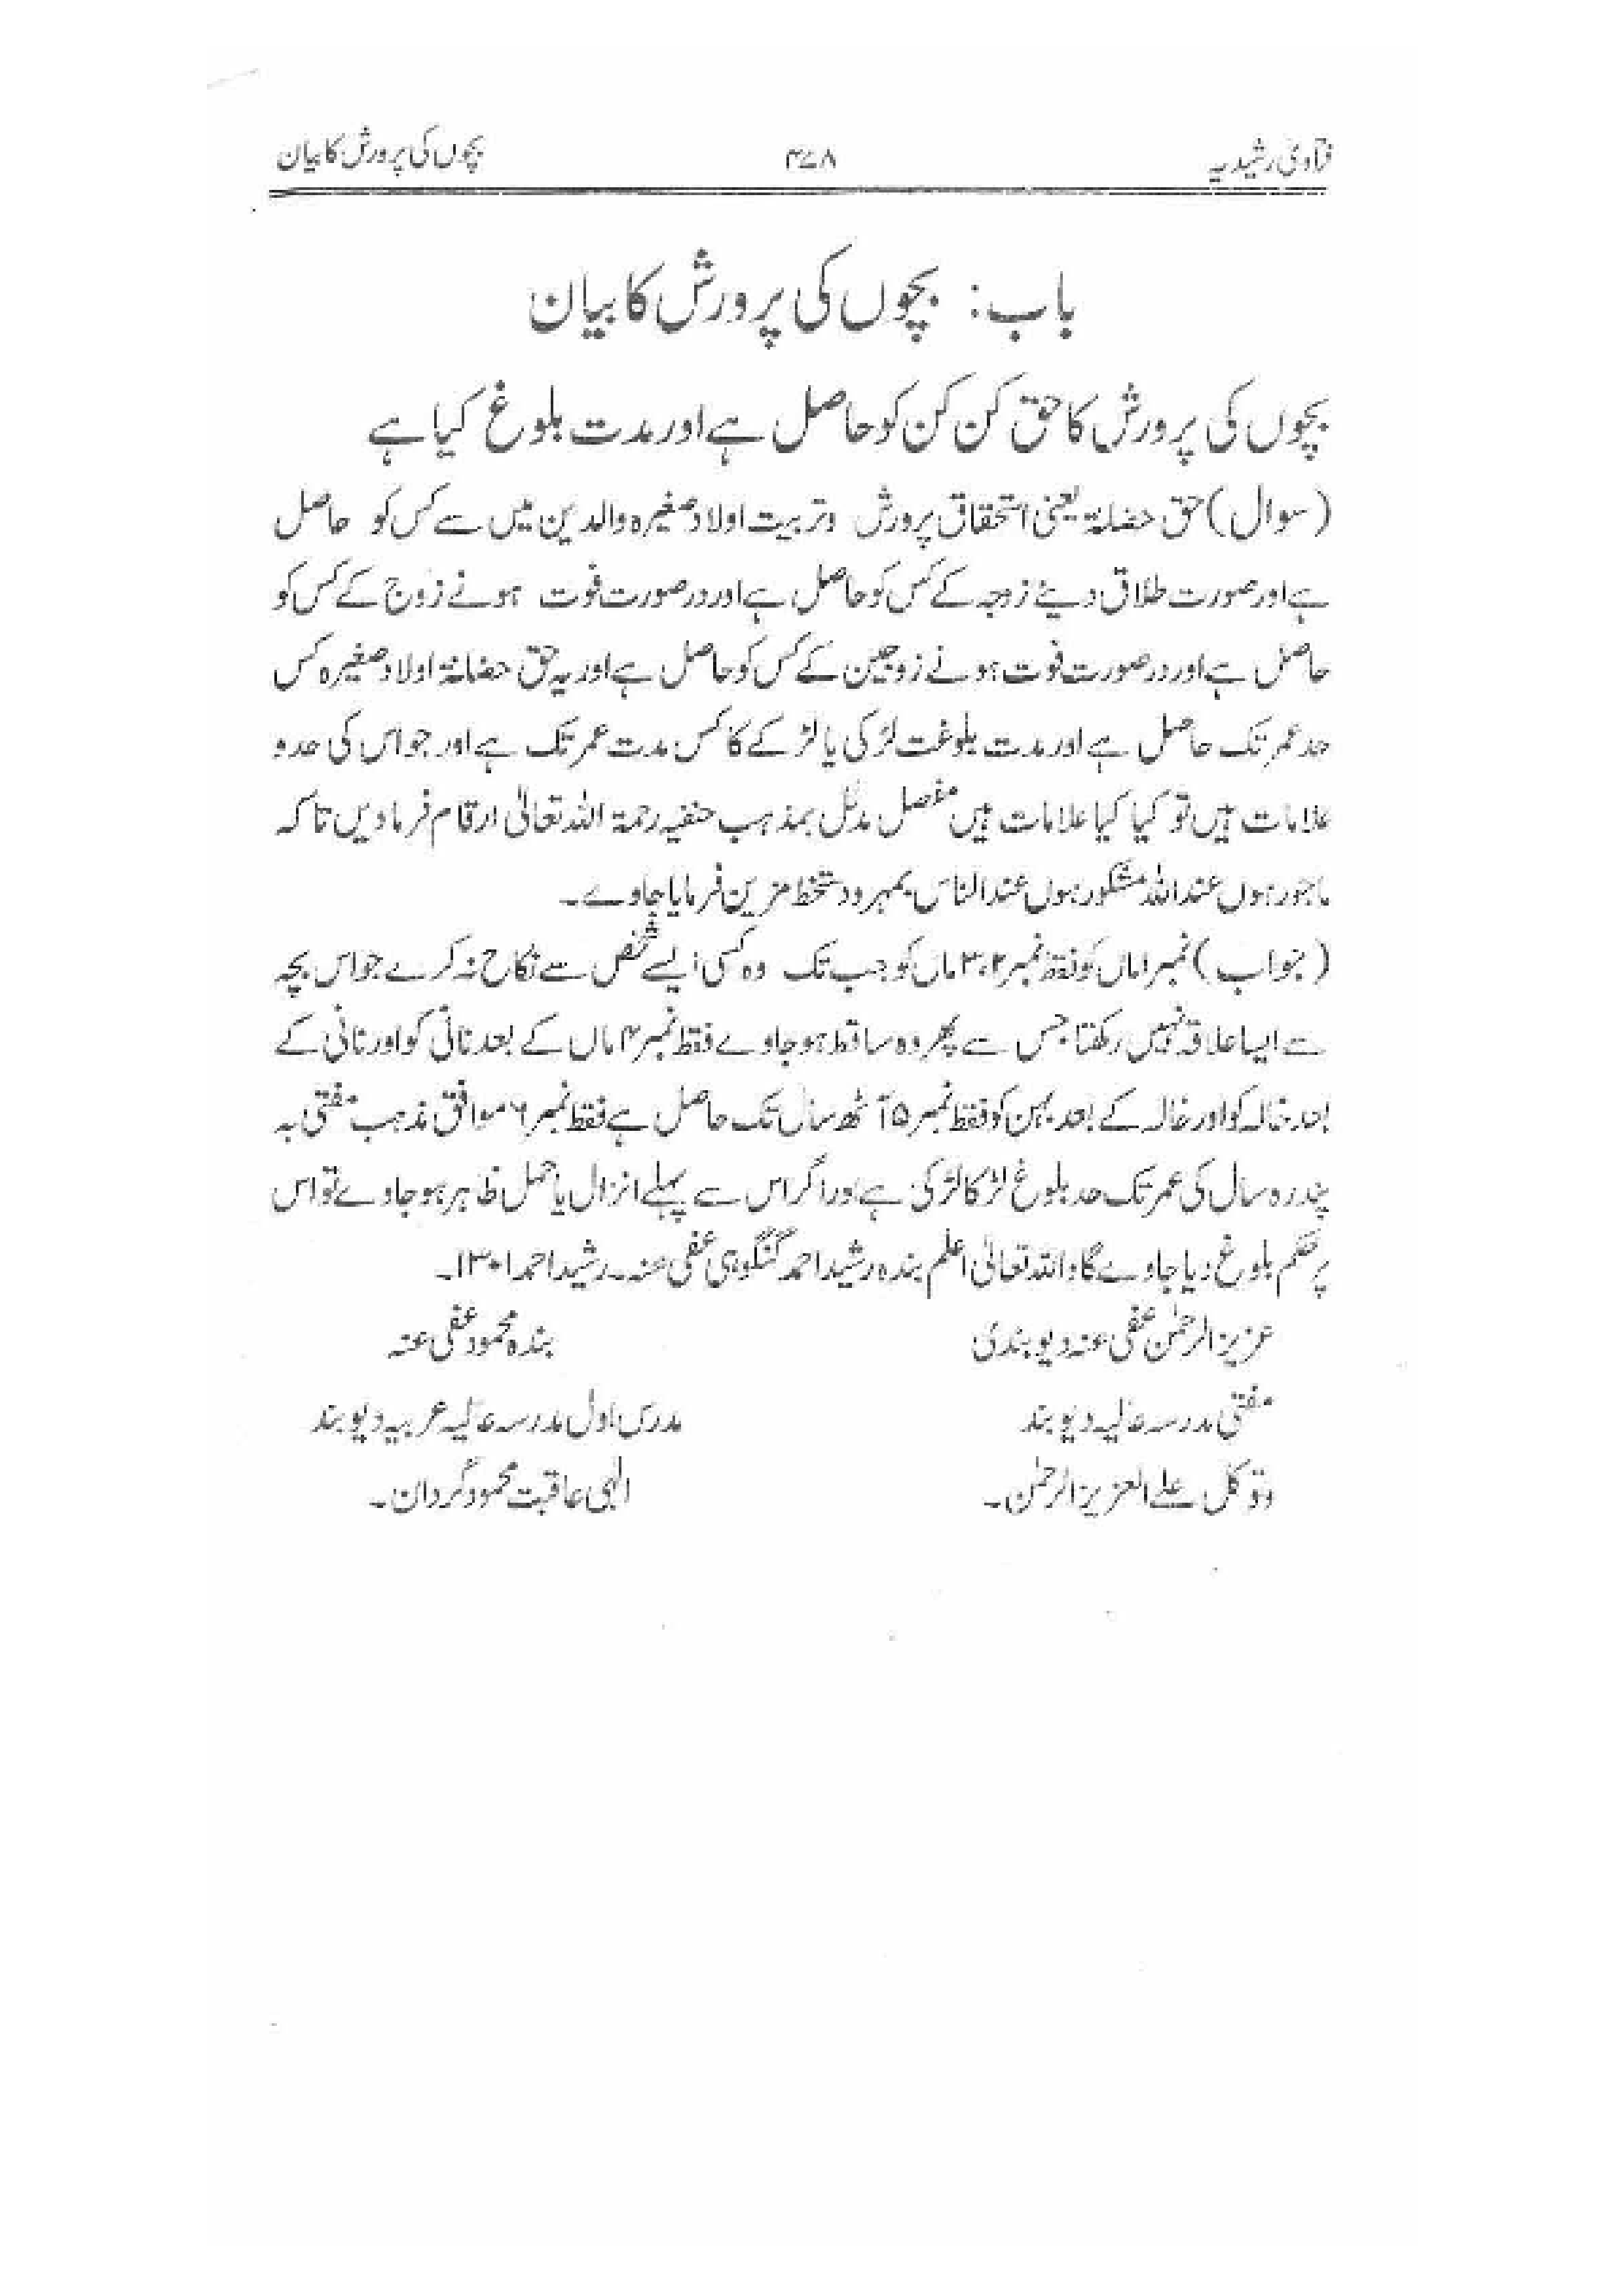 فتاویٰ رشیدیہ ۴۷۸ بچوں کی پرورش کا بیان
باب: بچوں کی پرورش کا بیان
بچوں کی پرورش کا حق کن کن کو حاصل ہے اور مدت بلوغ کیا ہے
(سوال) حق حضانۃ یعنی استحقاق پرورش وتربیت اولاد صغیرہ والدین میں سے کس کو حاصل
ہے اور صورت طلاق دینے زوجہ کے کس کو حاصل ہے اور در صورت فوت ہونے زوج کے کس کو
حاصل ہے اور در صورت فوت ہونے زوجین کے کس کو حاصل ہے اور یہ حق حضانۃ اولاد صغیرہ کس
حد عمر تک حاصل ہے اور مدت بلوغت لڑکی یا لڑکے کا کس مدت عمر تک ہے اور جو اس کی حد وہ
علامات ہیں تو کیا کیا علامات ہیں مفصل مدلل بمذہب حنفیہ رحمۃ اللہ تعالیٰ ارقام فرما دیں تا کہ
ماجور ہوں عند اللہ مشکور ہوں عند الناس بمہر و دستخط مزین فرمایا جاوے۔
(جواب) نمبر۱ ماں کو فقط نمبر۳،۲ ماں کو جب تک وہ کسی ایسے شخص سے نکاح نہ کرے جو اس بچہ
سے ایسا علاقہ نہیں رکھتا جس سے پھر وہ ساقط ہو جاوے فقط نمبر۴ ماں کے بعد نانی کو اور نانی کے
بعد خالہ کو اور خالہ کے بعد بہن کو فقط نمبر۵ آٹھ سال تک حاصل ہے فقط نمبر۶ موافق مذہب مفتی بہ
پندرہ سال کی عمر تک حد بلوغ لڑکا لڑکی ہے اور اگر اس سے پہلے انزال یا حمل ظاہر ہو جاوے تو اس
پر حکم بلوغ دیا جاوے گا واللہ تعالیٰ اعلم بندہ رشید احمد گنگوہی عفی عنہ۔ رشید احمد ۱۳۰۱۔
عزیز الرحمٰن عفی عنہ دیوبندی بندہ محمود عفی عنہ
مفتی مدرسہ عالیہ دیوبند مدرس اول مدرسہ عالیہ عربیہ دیوبند
وتوکل علے العزیز الرحمٰن۔ الٰہی عاقبت محمود گردان۔